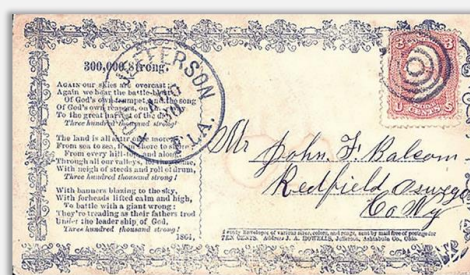 300,000 Strong.
AGAIN our skies are overcast
Again we hear the battle
Of God's own trumpet and the song
Of God's own reapers,
To the great harvest of the day
Three hundred thousand strong!
The land is all
From sea to sea, from shore to shore
From every hill-top, and
Through all our valleys,
With neigh of steeds and roll of drum,
Three hundred thousand strong!
With banners blazing to the sky,
With foreheads lifted calm and high,
To battle with a giant wrong
They're treading as their fathers trod
Under the leader ship of God,
Three hundred thousand strong!
1864,
JEFFERSON
AUG
FLA.
3 3
U S
CENTS
Mr John. F. Balcom
Redfield Oswego
Co NY
Fancy Envelopes of various sizes, colors, and songs, sent by mail free of postage for
TEN CENTS. Address J. A. HOWELLS, Jefferson, Ashtabula Co., Ohio.